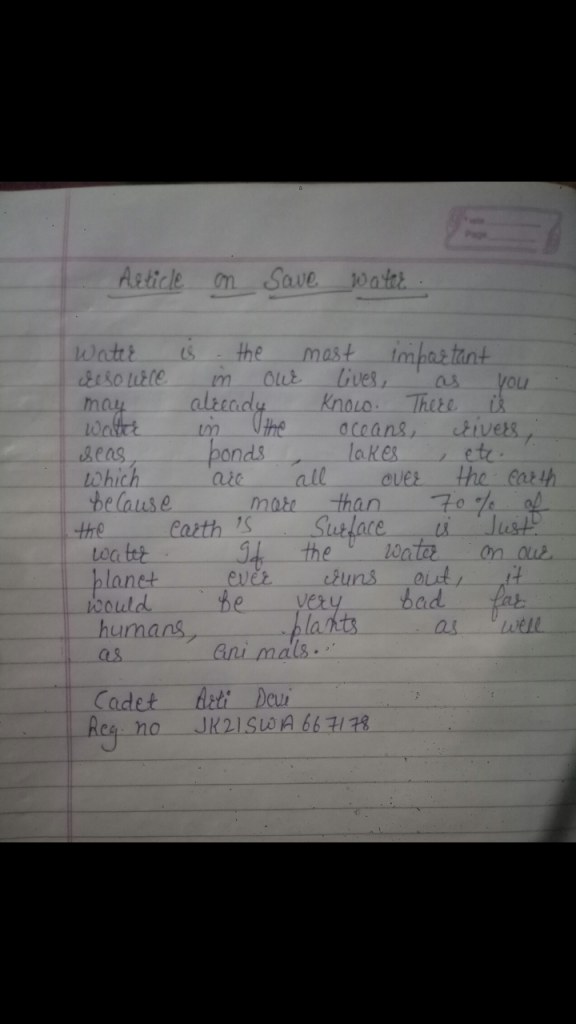 Date
Page
Article on Save water.
Water is the most important
resource in our lives, as you
may already know. There is
water in the oceans, rivers,
seas, ponds, lakes, etc.
which are all over the earth
because more than 70% of
the earth's surface is Just
water. If the water on our
planet ever runs out, it
would be very bad for
humans, plants as well
as animals.
Cadet Arti Devi
Reg. no JK21SWA667178